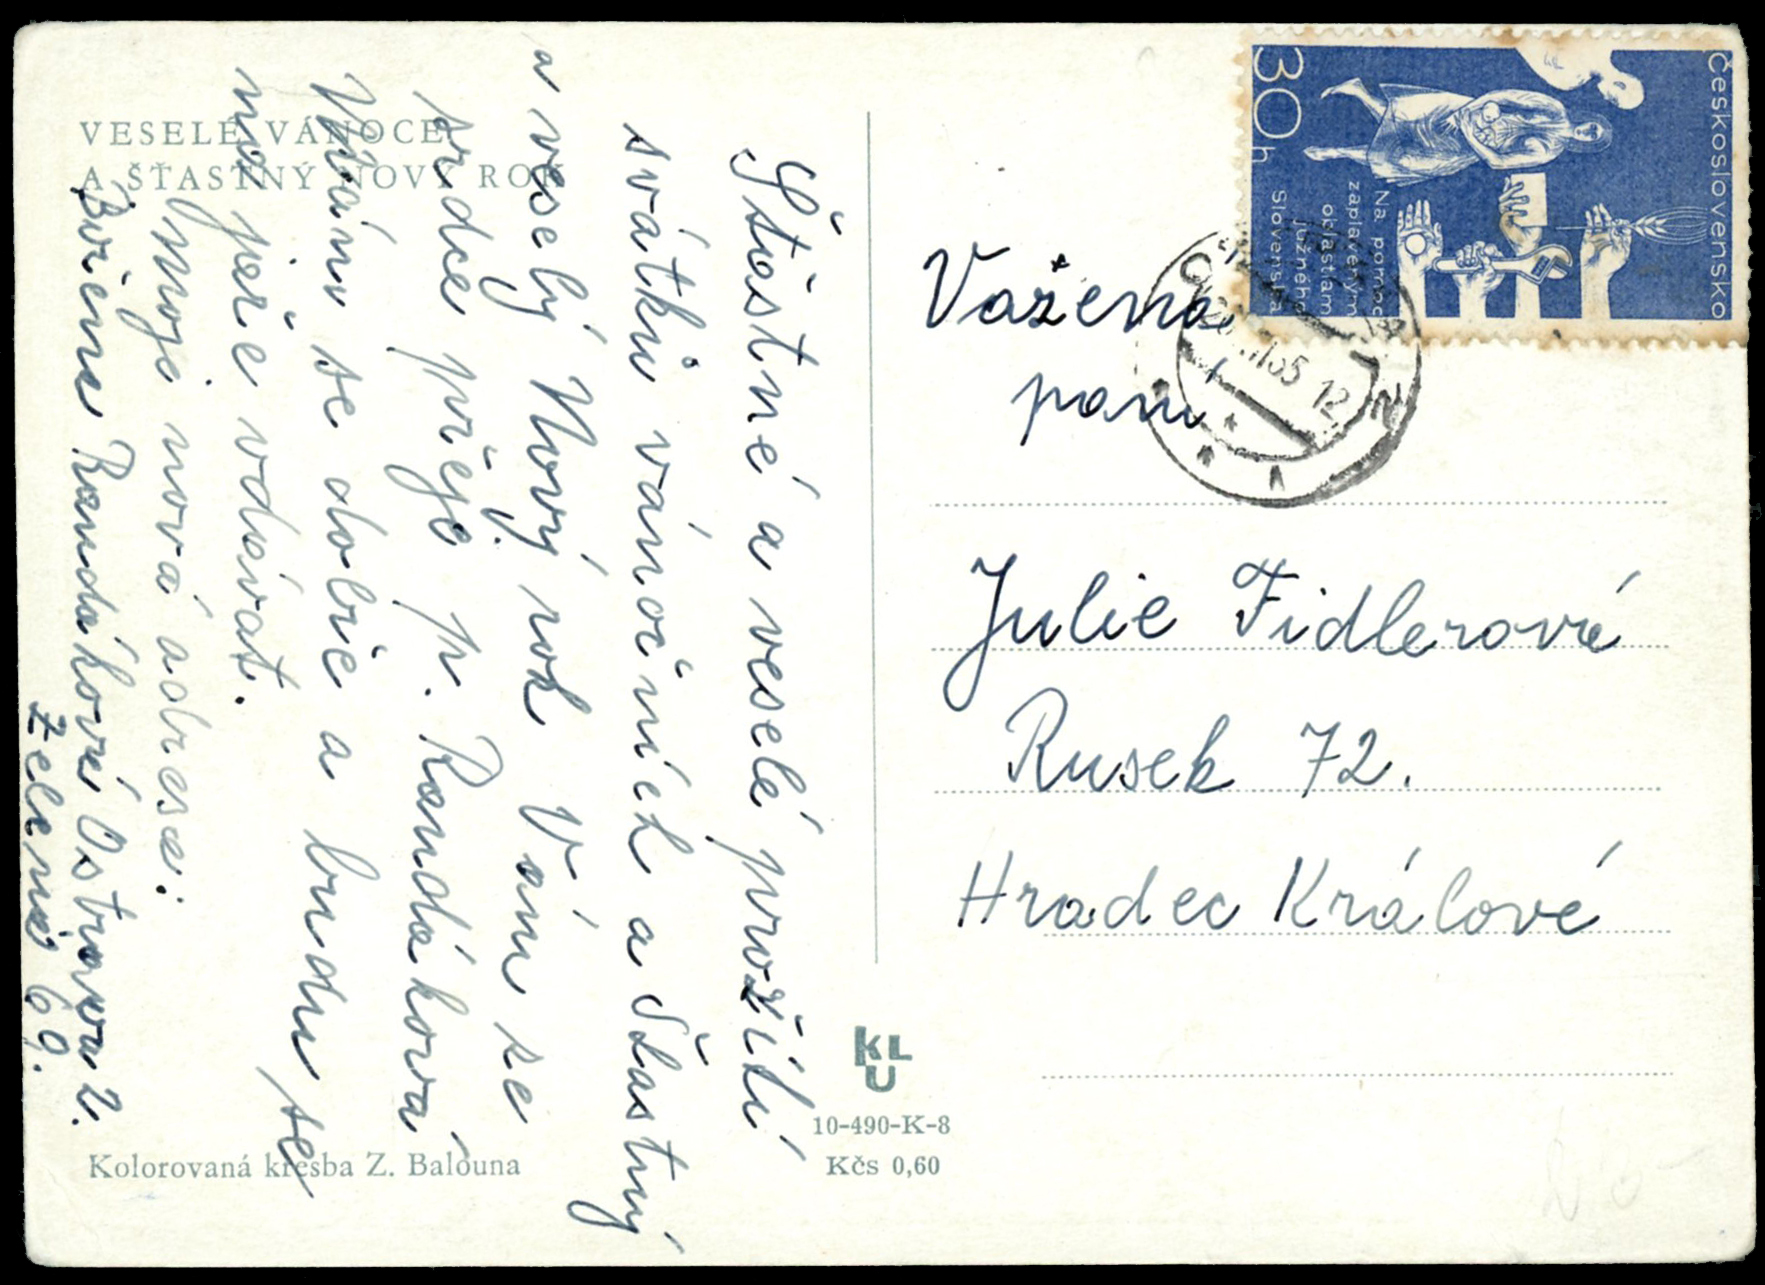 VESELÉ VÁNOCE
A ŠŤASTNÝ NOVÝ ROK
Šťastné a veselé prožití
svátků vánočních a šťastný
a veselý Nový rok Vám ze
srdce přeje p. Randáková
Mám se dobře a budu se
moje nová adresa:
Božena Randáková Ostrava 2.
Zelená 69.
Kolorovaná kresba Z. Balouna
KLU
10-490-K-8
Kčs 0,60
Československo
30h
Na pomoc
zaplaveným
oblastiam
južného
Slovenska
55 12
Vážená
paní
Julie Fidlerová
Rusek 72.
Hradec Králové